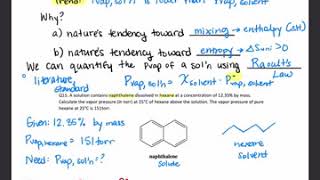 Trend: Pvap, sol'n is lower than Pvap, solvent
Why?
a) nature's tendency toward mixing → enthalpy (ΔH)
b) nature's tendency toward entropy → ΔSuni > 0
We can quantify the Pvap of a sol'n using Raoult's Law
literature standard
Pvap, sol'n = Xsolvent · P°vap, solvent
Q11. A solution contains naphthalene dissolved in hexane at a concentration of 12.35% by mass.
Calculate the vapor pressure (in torr) at 25°C of hexane above the solution. The vapor pressure of pure
hexane at 25°C is 151torr.
Given: 12.35% by mass
Pvap, hexane = 151 torr
Need: Pvap, sol'n = ?
naphthalene
solute
hexane
solvent